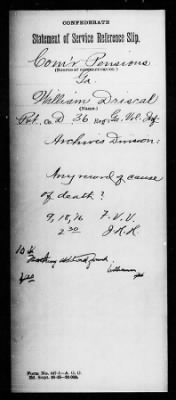 CONFEDERATE
Statement of Service Reference Slip.
Com'r Pensions
(Source of communication.)
Ga.
William Driscal
(Name.)
Pvt. Co. D. 36 Reg. Ga. Vol. Inf.
Archives Division:
Any record of cause
of death?
9, 18, 16 F. V. V.
2 30
Nothing additional found.